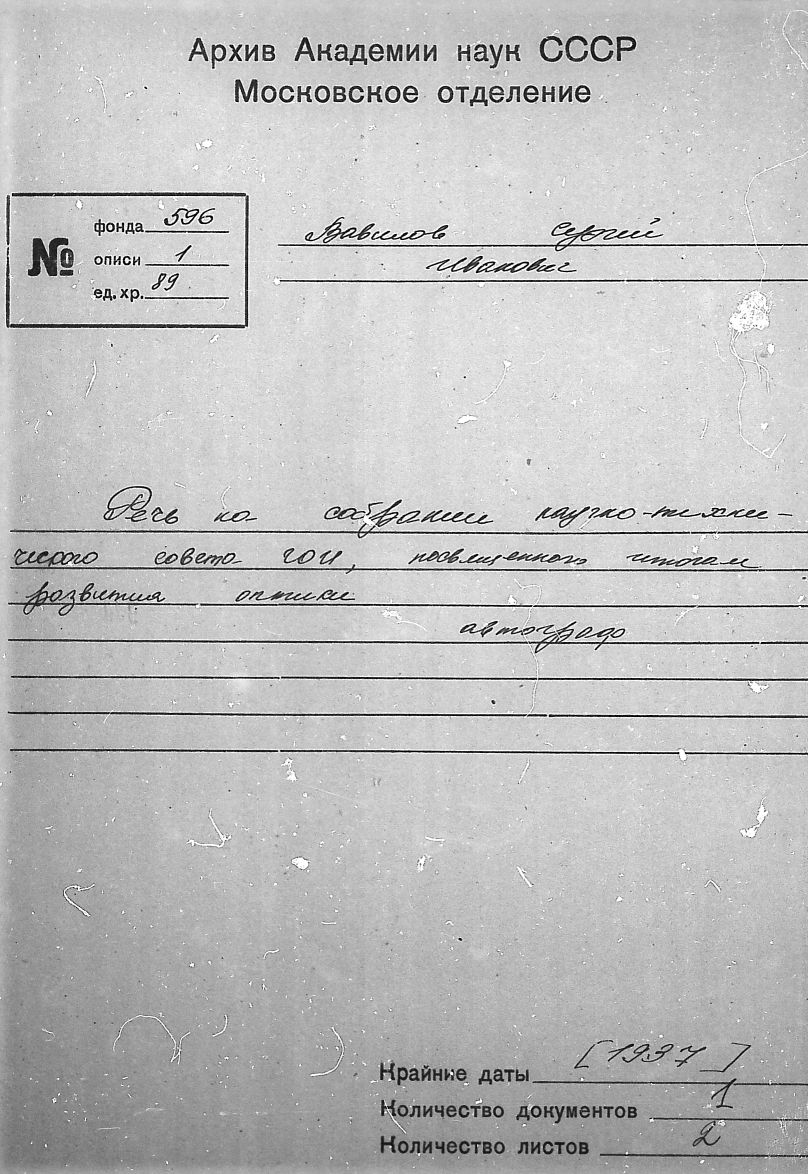 Архив Академии наук СССР
Московское отделение
№
фонда 596
описи 1
ед. хр. 89
Вавилов Сергей
Иванович
Речь на собрании научно-техни-
ческого совета ГОИ, посвященного итогам
развития оптики
автограф
Крайние даты [1937]
Количество документов 1
Количество листов 2